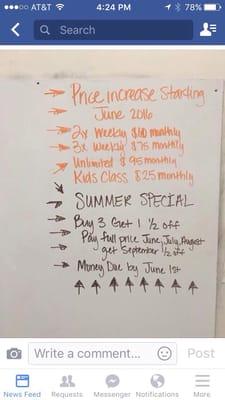 AT&T
4:24 PM
78%
Search
Price increase Starting
June 2016
2x Weekly $60 monthly
3x Weekly $75 monthly
Unlimited $95 monthly
Kids Class $25 monthly
SUMMER SPECIAL
Buy 3 Get 1 1/2 off
Pay full price June, July, August
get September 1/2 off
Money Due by June 1st
Write a comment...
Post
News Feed
Requests
Messenger
Notifications
More